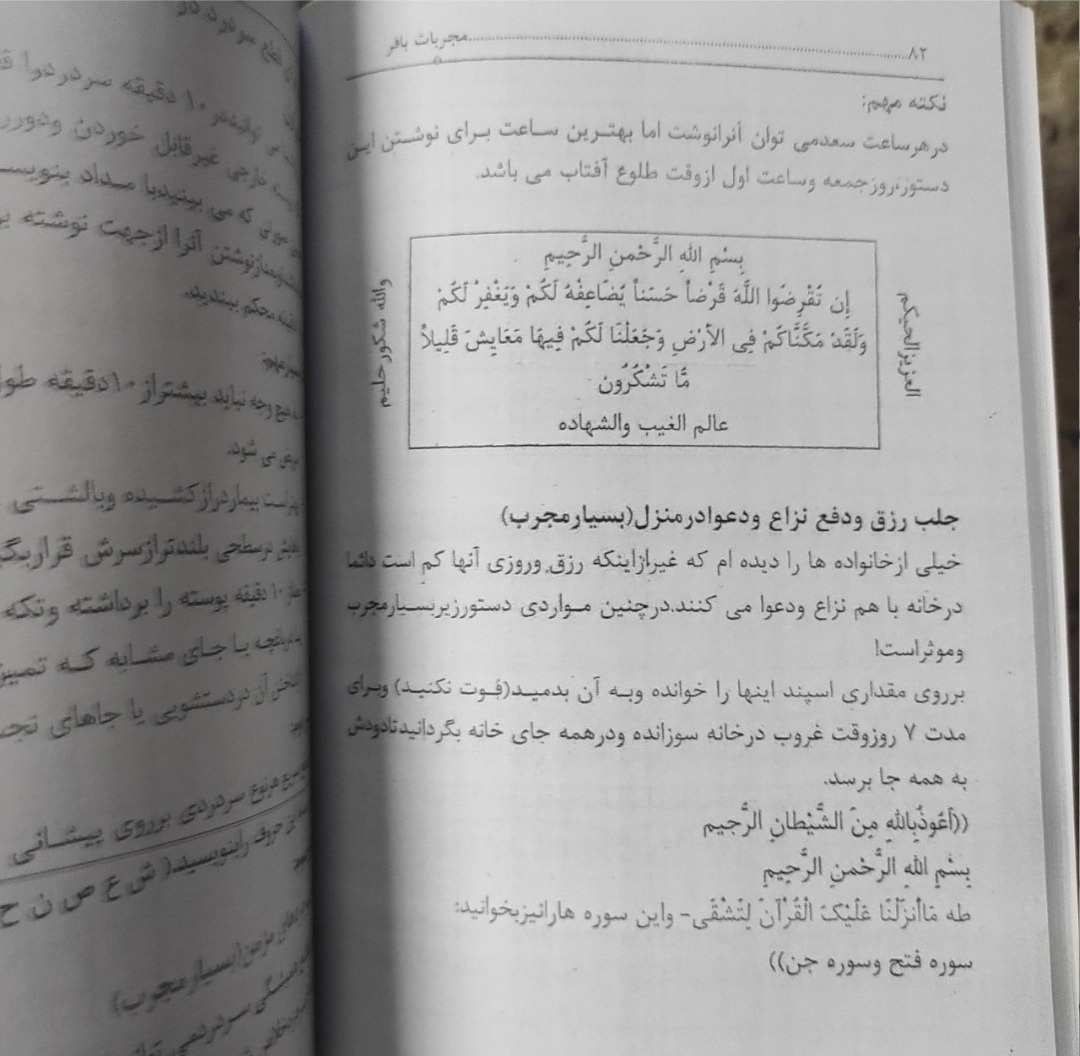 ۸۲ مجربات باقر
نکته مهم:
درهرساعت سعدمی توان آنرانوشت اما بهترین ساعت برای نوشتن این
دستور،روزجمعه وساعت اول ازوقت طلوع آفتاب می باشد.
بِسْمِ اللهِ الرَّحْمنِ الرَّحِیمِ
إِن تُقْرِضُوا اللَّهَ قَرْضاً حَسَناً یُضَاعِفْهُ لَکُمْ وَیَغْفِرْ لَکُمْ
وَلَقَدْ مَکَّنَّاکُمْ فِی الأَرْضِ وَجَعَلْنَا لَکُمْ فِیهَا مَعَایِشَ قَلِیلاً
مَّا تَشْکُرُون
عالم الغیب والشهاده
العزیزالحیکم
والله شکور حلیم
جلب رزق ودفع نزاع ودعوادرمنزل(بسیارمجرب)
خیلی ازخانواده ها را دیده ام که غیرازاینکه رزق وروزی آنها کم است دائما
درخانه با هم نزاع ودعوا می کنند.درچنین مواردی دستورزیربسیارمجرب
وموثراست!
برروی مقداری اسپند اینها را خوانده وبه آن بدمید(فوت نکنید) وبرای
مدت ۷ روزوقت غروب درخانه سوزانده ودرهمه جای خانه بگردانیدتادودش
به همه جا برسد.
((أعُوذُبِاللهِ مِنَ الشَّیْطانِ الرَّجیم
بِسْمِ اللهِ الرَّحْمنِ الرَّحِیمِ
طه مَاأَنزَلْنَا عَلَیْکَ الْقُرْآنَ لِتَشْقَى- واین سوره هارانیزبخوانید:
سوره فتح وسوره جن))
قطع سردرد در
۱۰ دقیقه سردردوا
غیرقابل خوردن
که می بینیدبا مداد
آنرا ازجهت نوشته
محکم ببندید.
هیچ وجه نباید بیشتراز ۱۰دقیقه
می شود.
است بیماردرازکشیده وبالشتی
درسطحی بلندترازسرش
۱۰ دقیقه پوسته را برداشته وتکه
یا جای مشابه که
آن دردستشویی یا جاهای
هرنوع سردردی برروی پیشانی
حروف رابنویسید( ش ع ص ن ح
(بسیارمجرب)